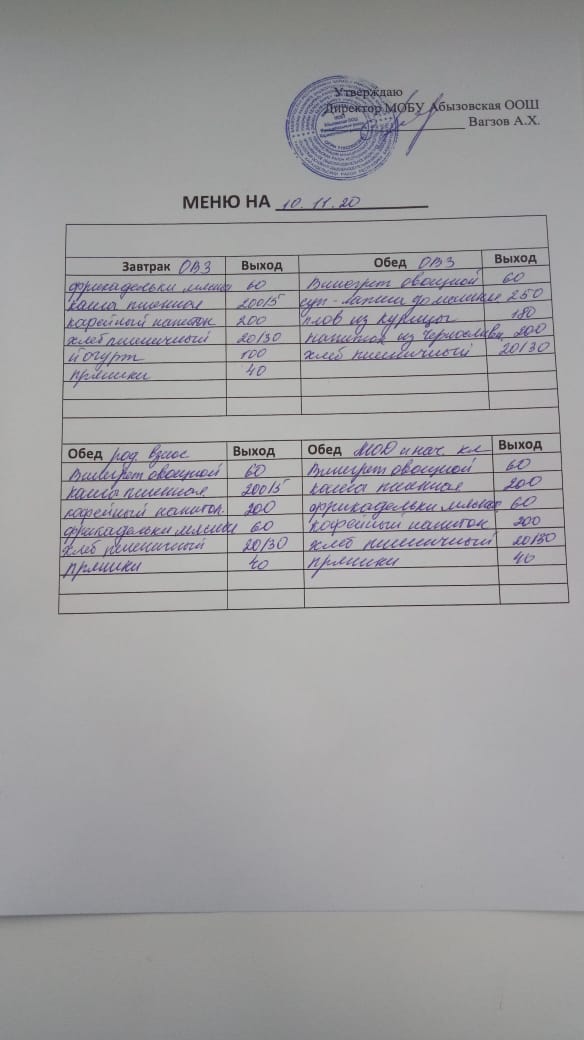 Утверждаю
Директор МОБУ Абызовская ООШ
Вагзов А.Х.
МЕНЮ НА 10.11.20
Завтрак ОВЗ Выход Обед ОВЗ Выход
фрикадельки мясные 60 Винегрет овощной 60
каша пшенная 200/5 суп-лапша домашняя 250
кофейный напиток 200 плов из курицы 180
хлеб пшеничный 20/30 напиток из чернослива 200
йогурт 100 хлеб пшеничный 20/30
пряники 40
Обед род. взнос Выход Обед МОД и нач. кл Выход
Винегрет овощной 60 Винегрет овощной 60
каша пшенная 200/5 каша пшенная 200
кофейный напиток 200 фрикадельки мясные 60
фрикадельки мясные 60 кофейный напиток 200
хлеб пшеничный 20/30 хлеб пшеничный 20/30
пряники 40 пряники 40